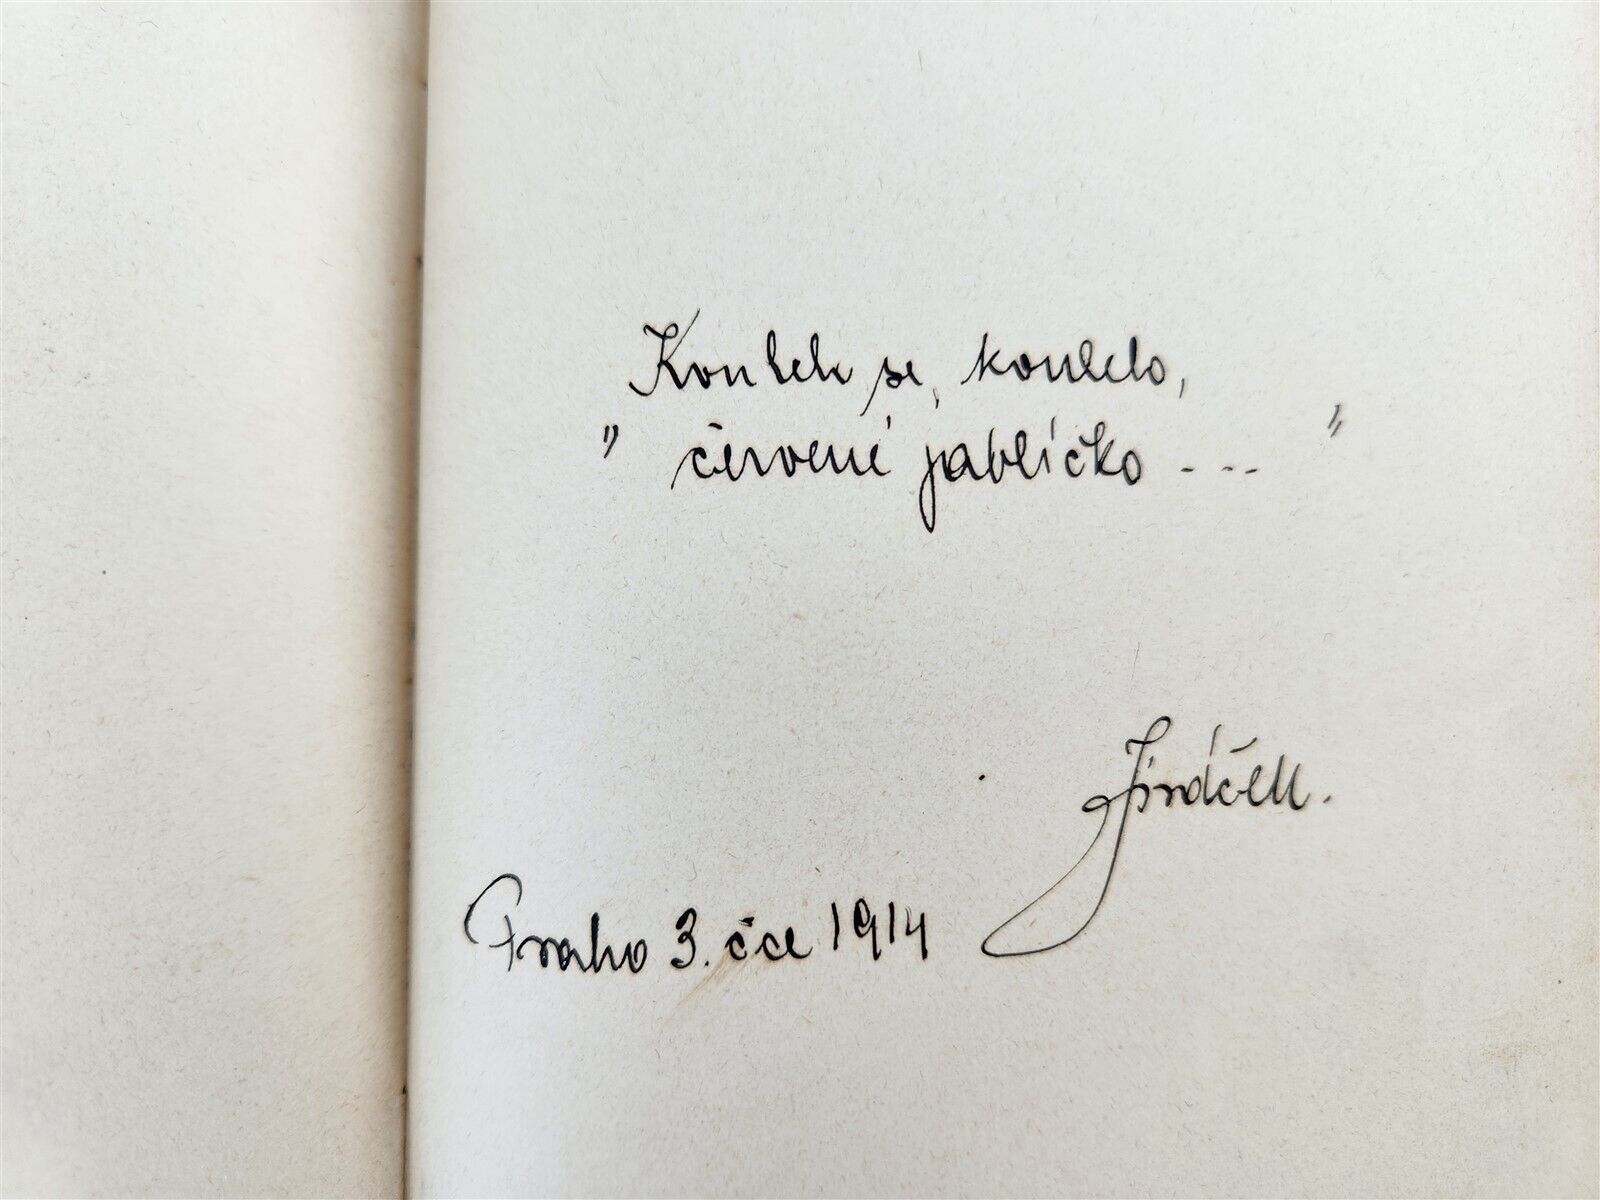 Koulelo se, koulelo,
" červené jablíčko - - - "
Jiráček.
Praha 3. čce 1914